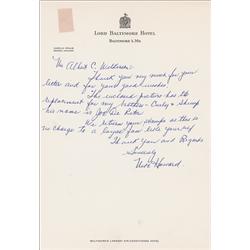 LORD BALTIMORE HOTEL
BALTIMORE 3, MD.
Mr Albert C.
Thank you very much for your
letter and for your good wishes.
The enclosed picture has the
replacement for my brothers - Curly & Shemp
his name is Joe De Rita
We return your stamps as this is
no charge to a loyal fan like yourself
Thank you and Regards
Sincerely
Moe Howard
BALTIMORE'S LARGEST AIR-CONDITIONED HOTEL